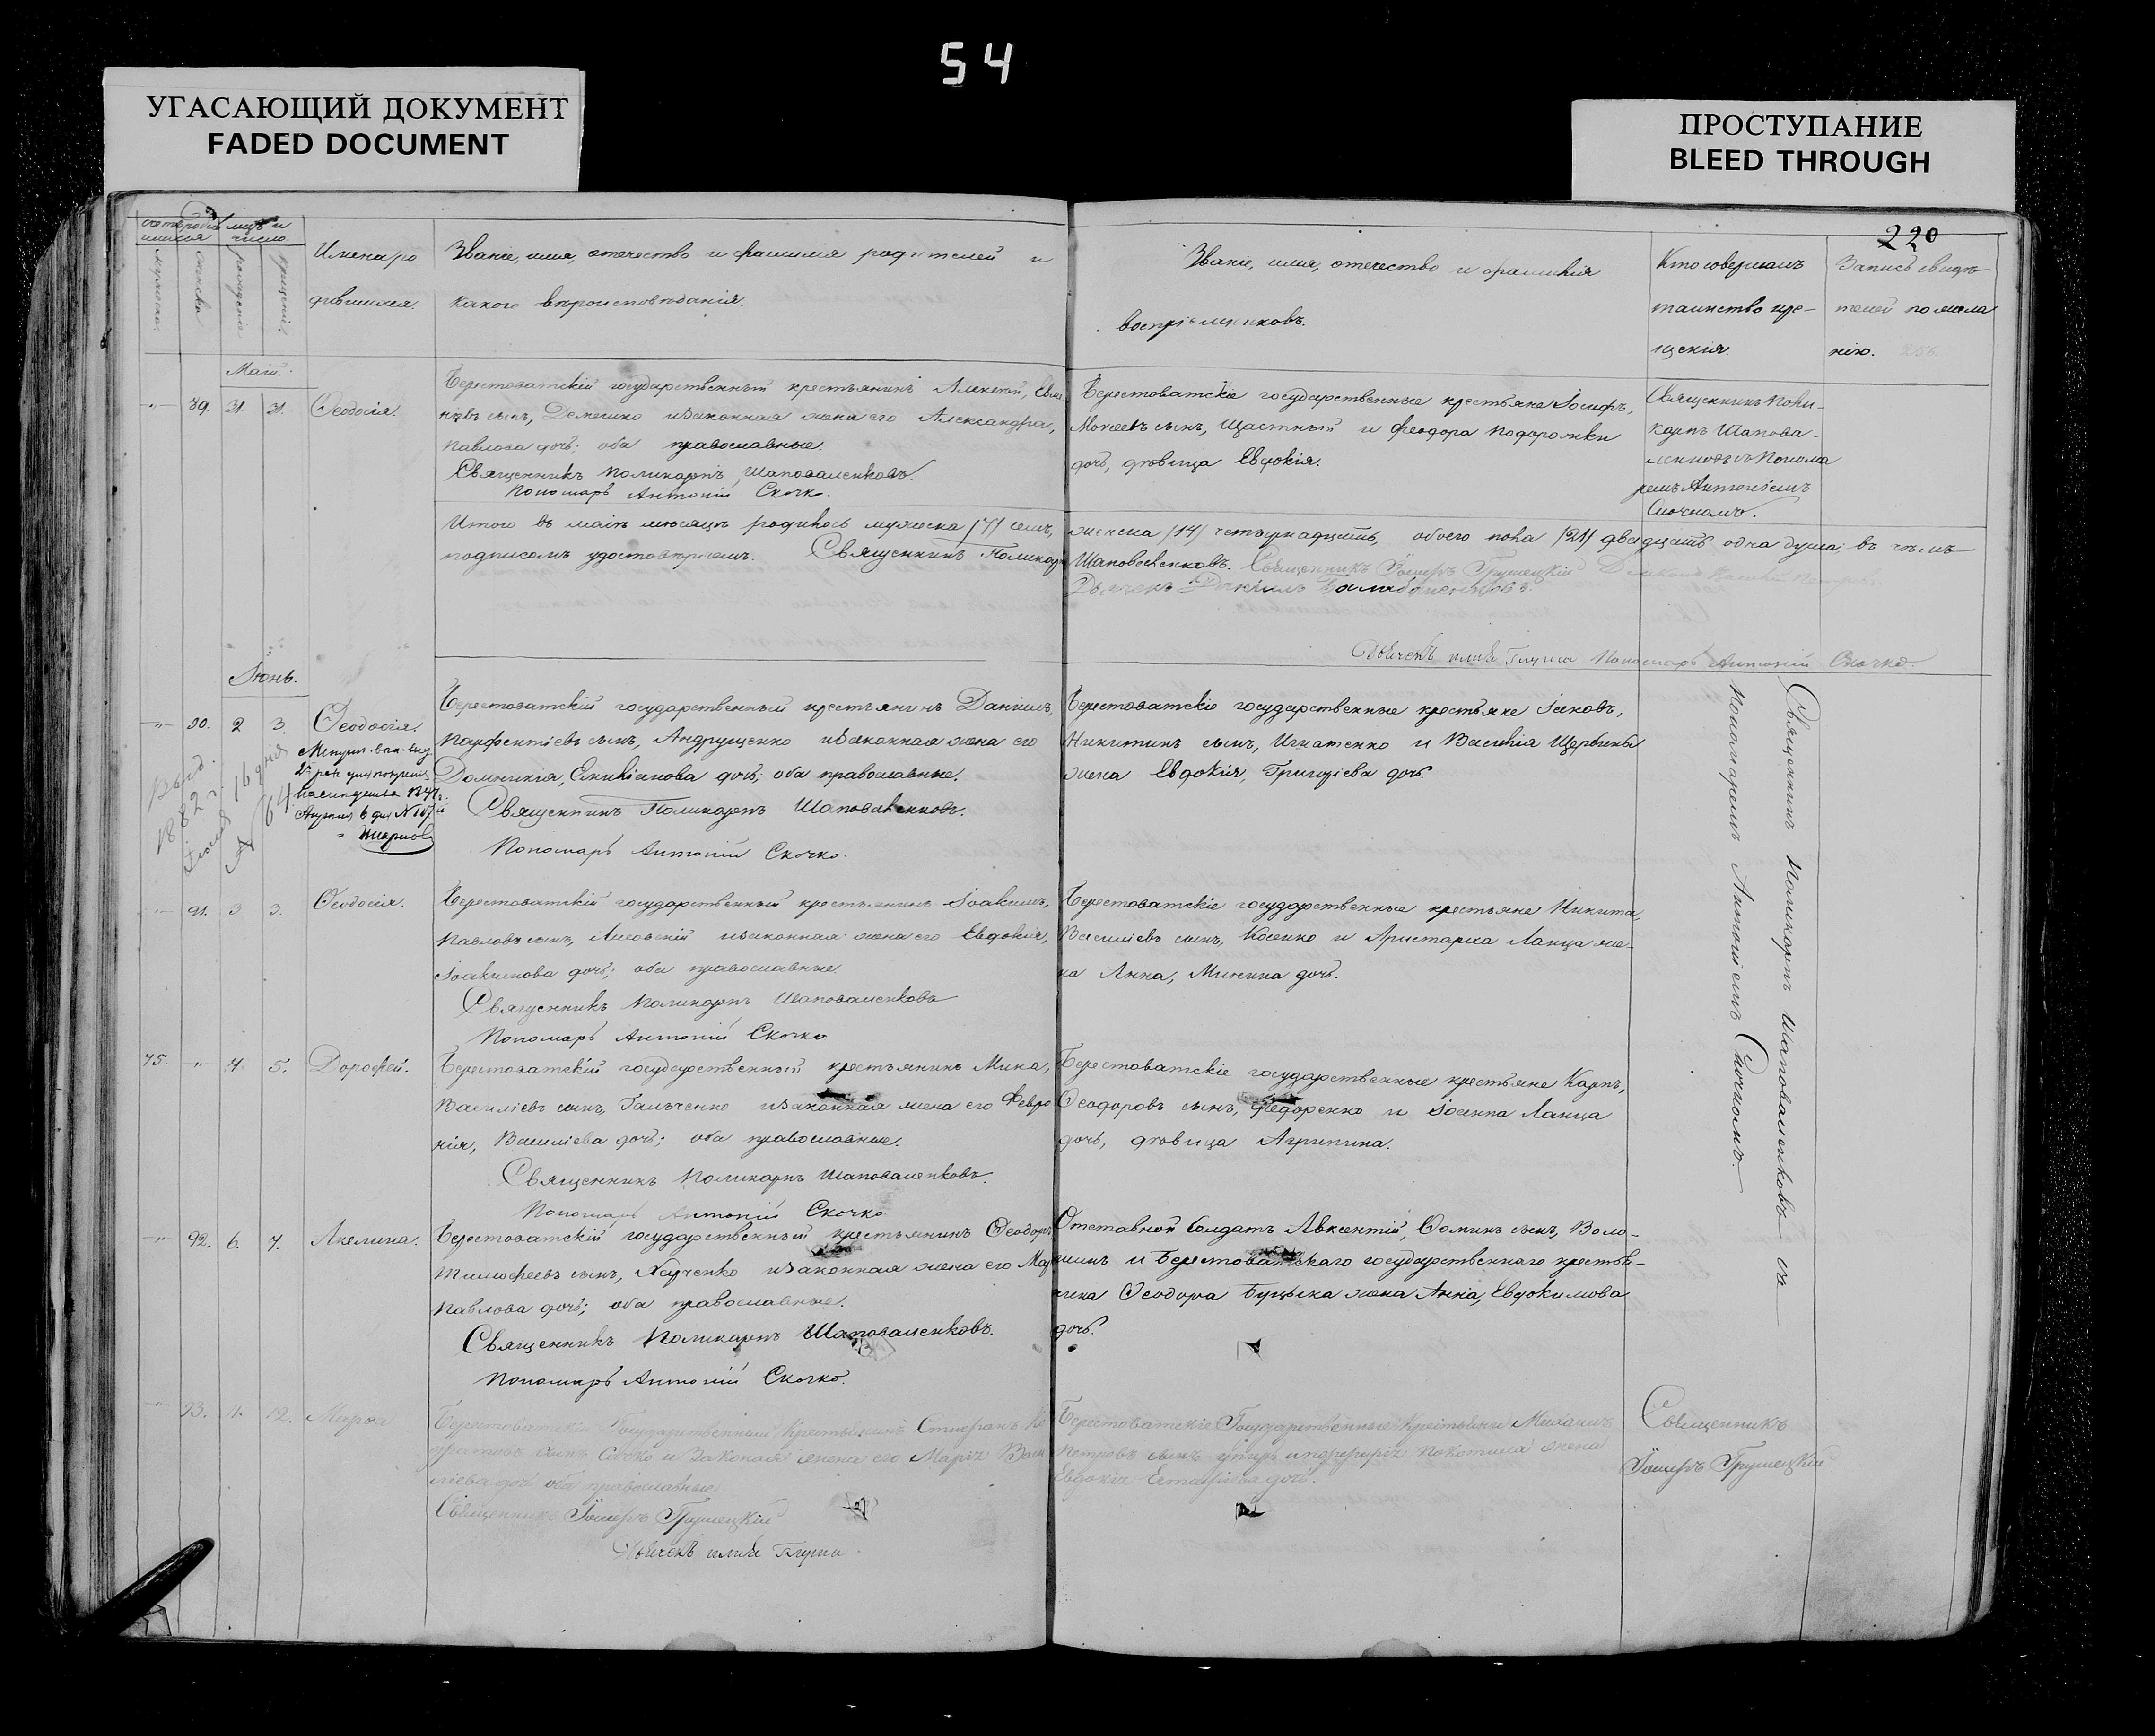 54
УГАСАЮЩИЙ ДОКУМЕНТ
FADED DOCUMENT
ПРОСТУПАНИЕ
BLEED THROUGH
220
мужеска.
женска
рожденія
крещенія.
Имена ро
дившихся.
Званіе, имя, отечество и фамилія родителей и
какого вѣроисповѣданія.
Званіе, имя, отечество и фамилія
воспріемниковъ.
Кто совершалъ
таинство кре-
щенія.
Запись свидѣ
телей по жела
нію.
Маій.
89. 31. 31. Ѳеодосія.
Берестоватскій государственный крестьянинъ Алексѣй,
сынъ, Демешко и законная жена его Александра,
Павлова дочь; оба православные.
Священникъ Поликарпъ Шаповаленковъ.
Пономарь Антоній Скочко.
Берестоватскіе государственные крестьяне Іосифъ,
Моисеевъ сынъ, Щастный и Феодора Подорожки
дочь, дѣвица Евдокія.
Священникъ Поли-
карпъ Шапова-
ленковъ съ Понома
ремъ Антоніемъ
Скочкомъ.
Итого въ маіѣ мѣсяцѣ родилось мужеска /7/ семь, женска /14/ четырнадцать, обоего пола /21/ двадцать одна душа; въ чемъ
подписомъ удостовѣряемъ. Священникъ Поликарпъ Шаповаленковъ. Священникъ Іосифъ Грушецкій
Дьячекъ Илія Глуша Пономарь Антоній Скочко.
Іюнь.
90. 2 3. Ѳеодосія.
Выд.
1882 г.
Іюля 16 дня
№ 64
Берестоватскій государственный крестьянинъ Даніилъ,
Парфентіевъ сынъ, Андрущенко и законная жена его
Домникія, дочь; оба православные.
Священникъ Поликарпъ Шаповаленковъ.
Пономарь Антоній Скочко.
Берестоватскіе государственные крестьяне Іаковъ,
Никитинъ сынъ, Игнатенко и Василія Щербины
жена Евдокія, Григоріева дочь.
Священникъ Поликарпъ Шаповаленковъ съ
Пономаремъ Антоніемъ Скочкомъ.
91. 3 3. Ѳеодосія.
Берестоватскій государственный крестьянинъ Іоакимъ,
Павловъ сынъ, Лисовскій и законная жена его Евдокія,
Іоакимова дочь; оба православные.
Священникъ Поликарпъ Шаповаленковъ
Пономарь Антоній Скочко
Берестоватскіе государственные крестьяне Никита,
Василіевъ сынъ, Косенко и Аристарха Ланца же-
на Анна, Минина дочь.
75. 4. 5. Дорофей.
Берестоватскій государственный крестьянинъ Мина,
Василіевъ сынъ, Гальченко и законная жена его Февро
нія, Василіева дочь; оба православные.
Священникъ Поликарпъ Шаповаленковъ.
Пономарь Антоній Скочко
Берестоватскіе государственные крестьяне Карпъ,
Ѳеодоровъ сынъ, Федоренко и Іоанна Ланца
дочь, дѣвица Агрипина.
92. 6. 7. Акелина.
Берестоватскій государственный крестьянинъ Ѳеодоръ
Тимофеевъ сынъ, Харченко и законная жена его
Павлова дочь; оба православные.
Священникъ Поликарпъ Шаповаленковъ.
Пономарь Антоній Скочко.
Отставной солдатъ Авксентій, Ѳоминъ сынъ, Воло-
шинъ и Берестоватскаго государственнаго крестья-
нина Ѳеодора жена Анна, Евдокимова
дочь.
93. 4. 12. Марѳа
Берестоватскій Государственный Крестьянинъ Стефанъ
сынъ и Законная жена его Марія Васи
ліева дочь оба православные
Священникъ Іосифъ Грушецкій
Дьячекъ Илія Глуша
Берестоватскіе Государственные Крестьяне Михаилъ
Петровъ сынъ и Порфирія жена
Евдокія дочь.
Священникъ
Іосифъ Грушецкій